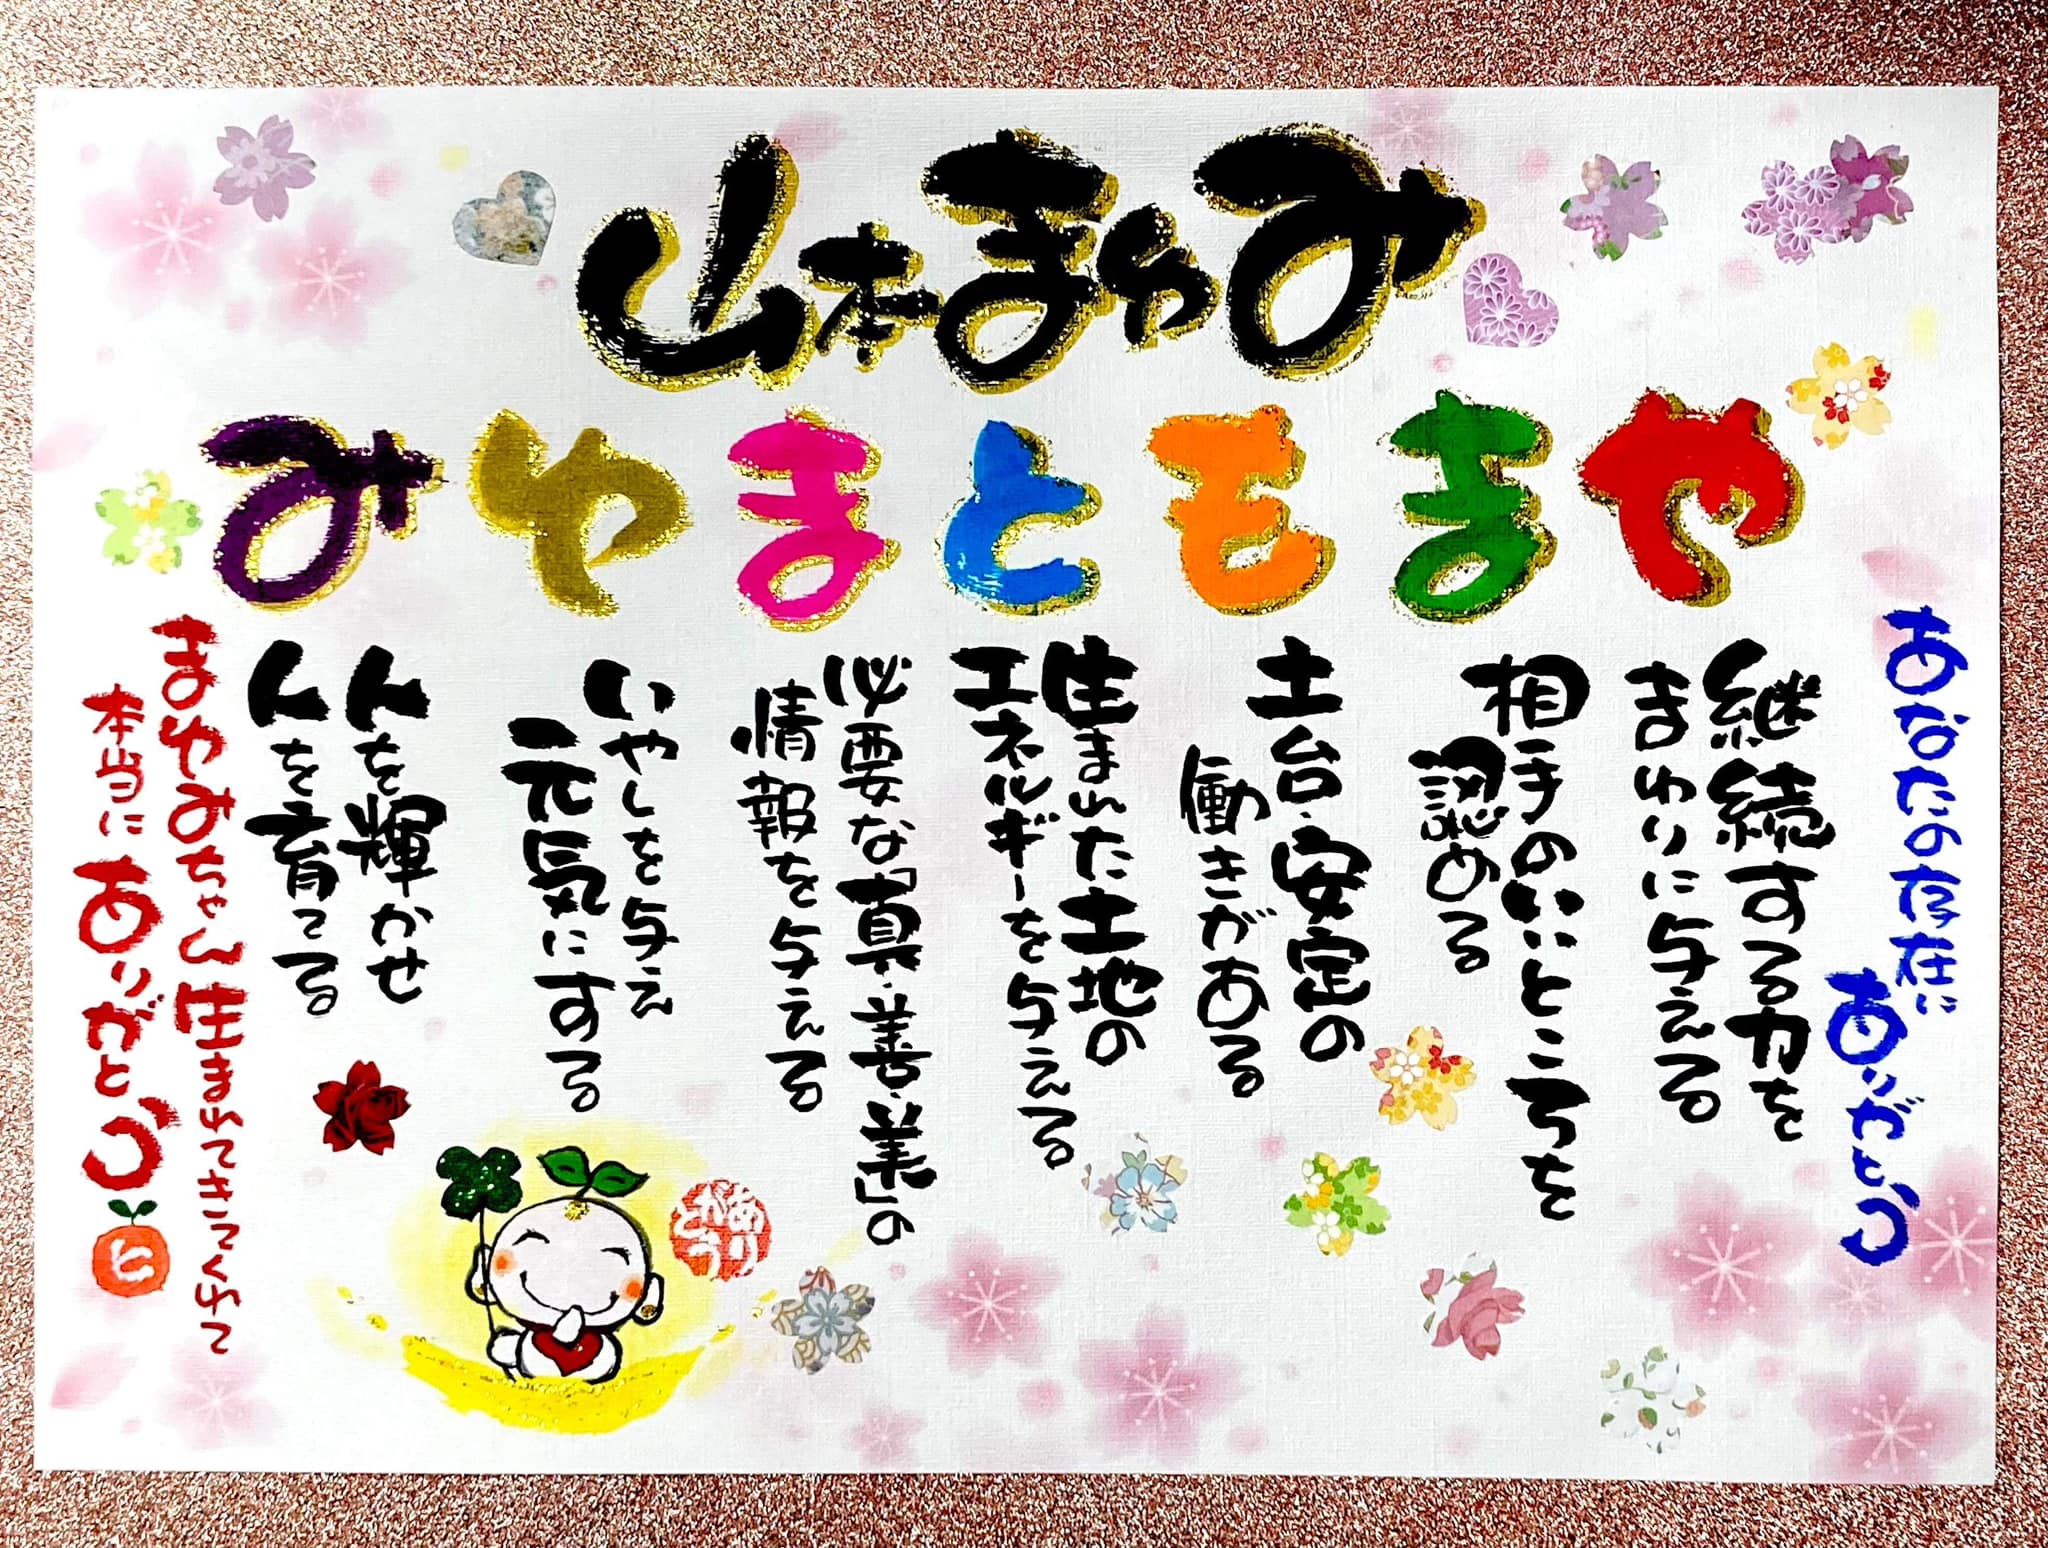 山本まやみ
やまもとまやみ
あなたの存在に
ありがとう
継続する力を
まわりに与える
相手のいいところを
認める
土台・安定の
働きがある
生まれた土地の
エネルギーを与える
必要な「真・善・美」の
情報を与える
いやしを与え
元気にする
人を輝かせ
人を育てる
まやみちゃん生まれてきてくれて
本当にありがとう
ヒ
ありがとう